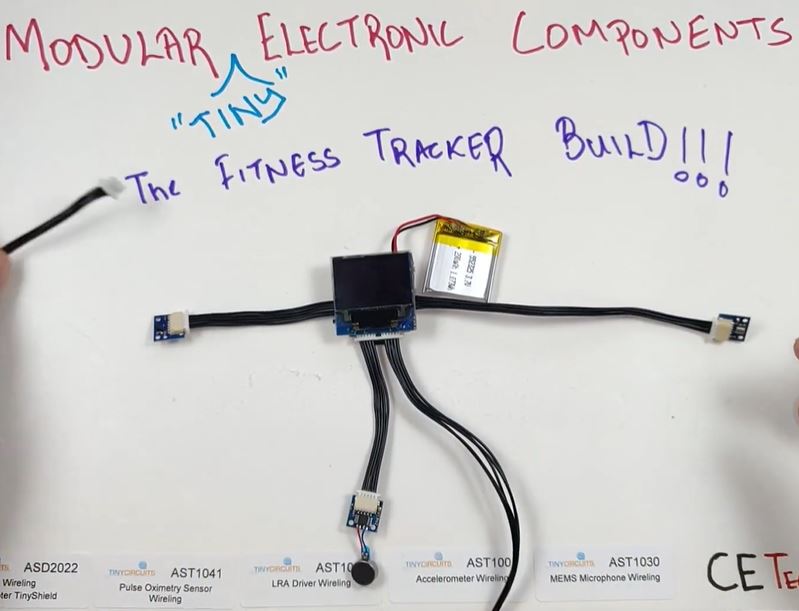 MODULAR ELECTRONIC COMPONENTS
"TINY"
The FITNESS TRACKER BUILD!!!
ASD2022
Wireling
ter TinyShield
TINYCIRCUITS AST1041
Pulse Oximetry Sensor
Wireling
TINYCIRCUITS AST10
LRA Driver Wireling
TINYCIRCUITS AST100
Accelerometer Wireling
TINYCIRCUITS AST1030
MEMS Microphone Wireling
CETe